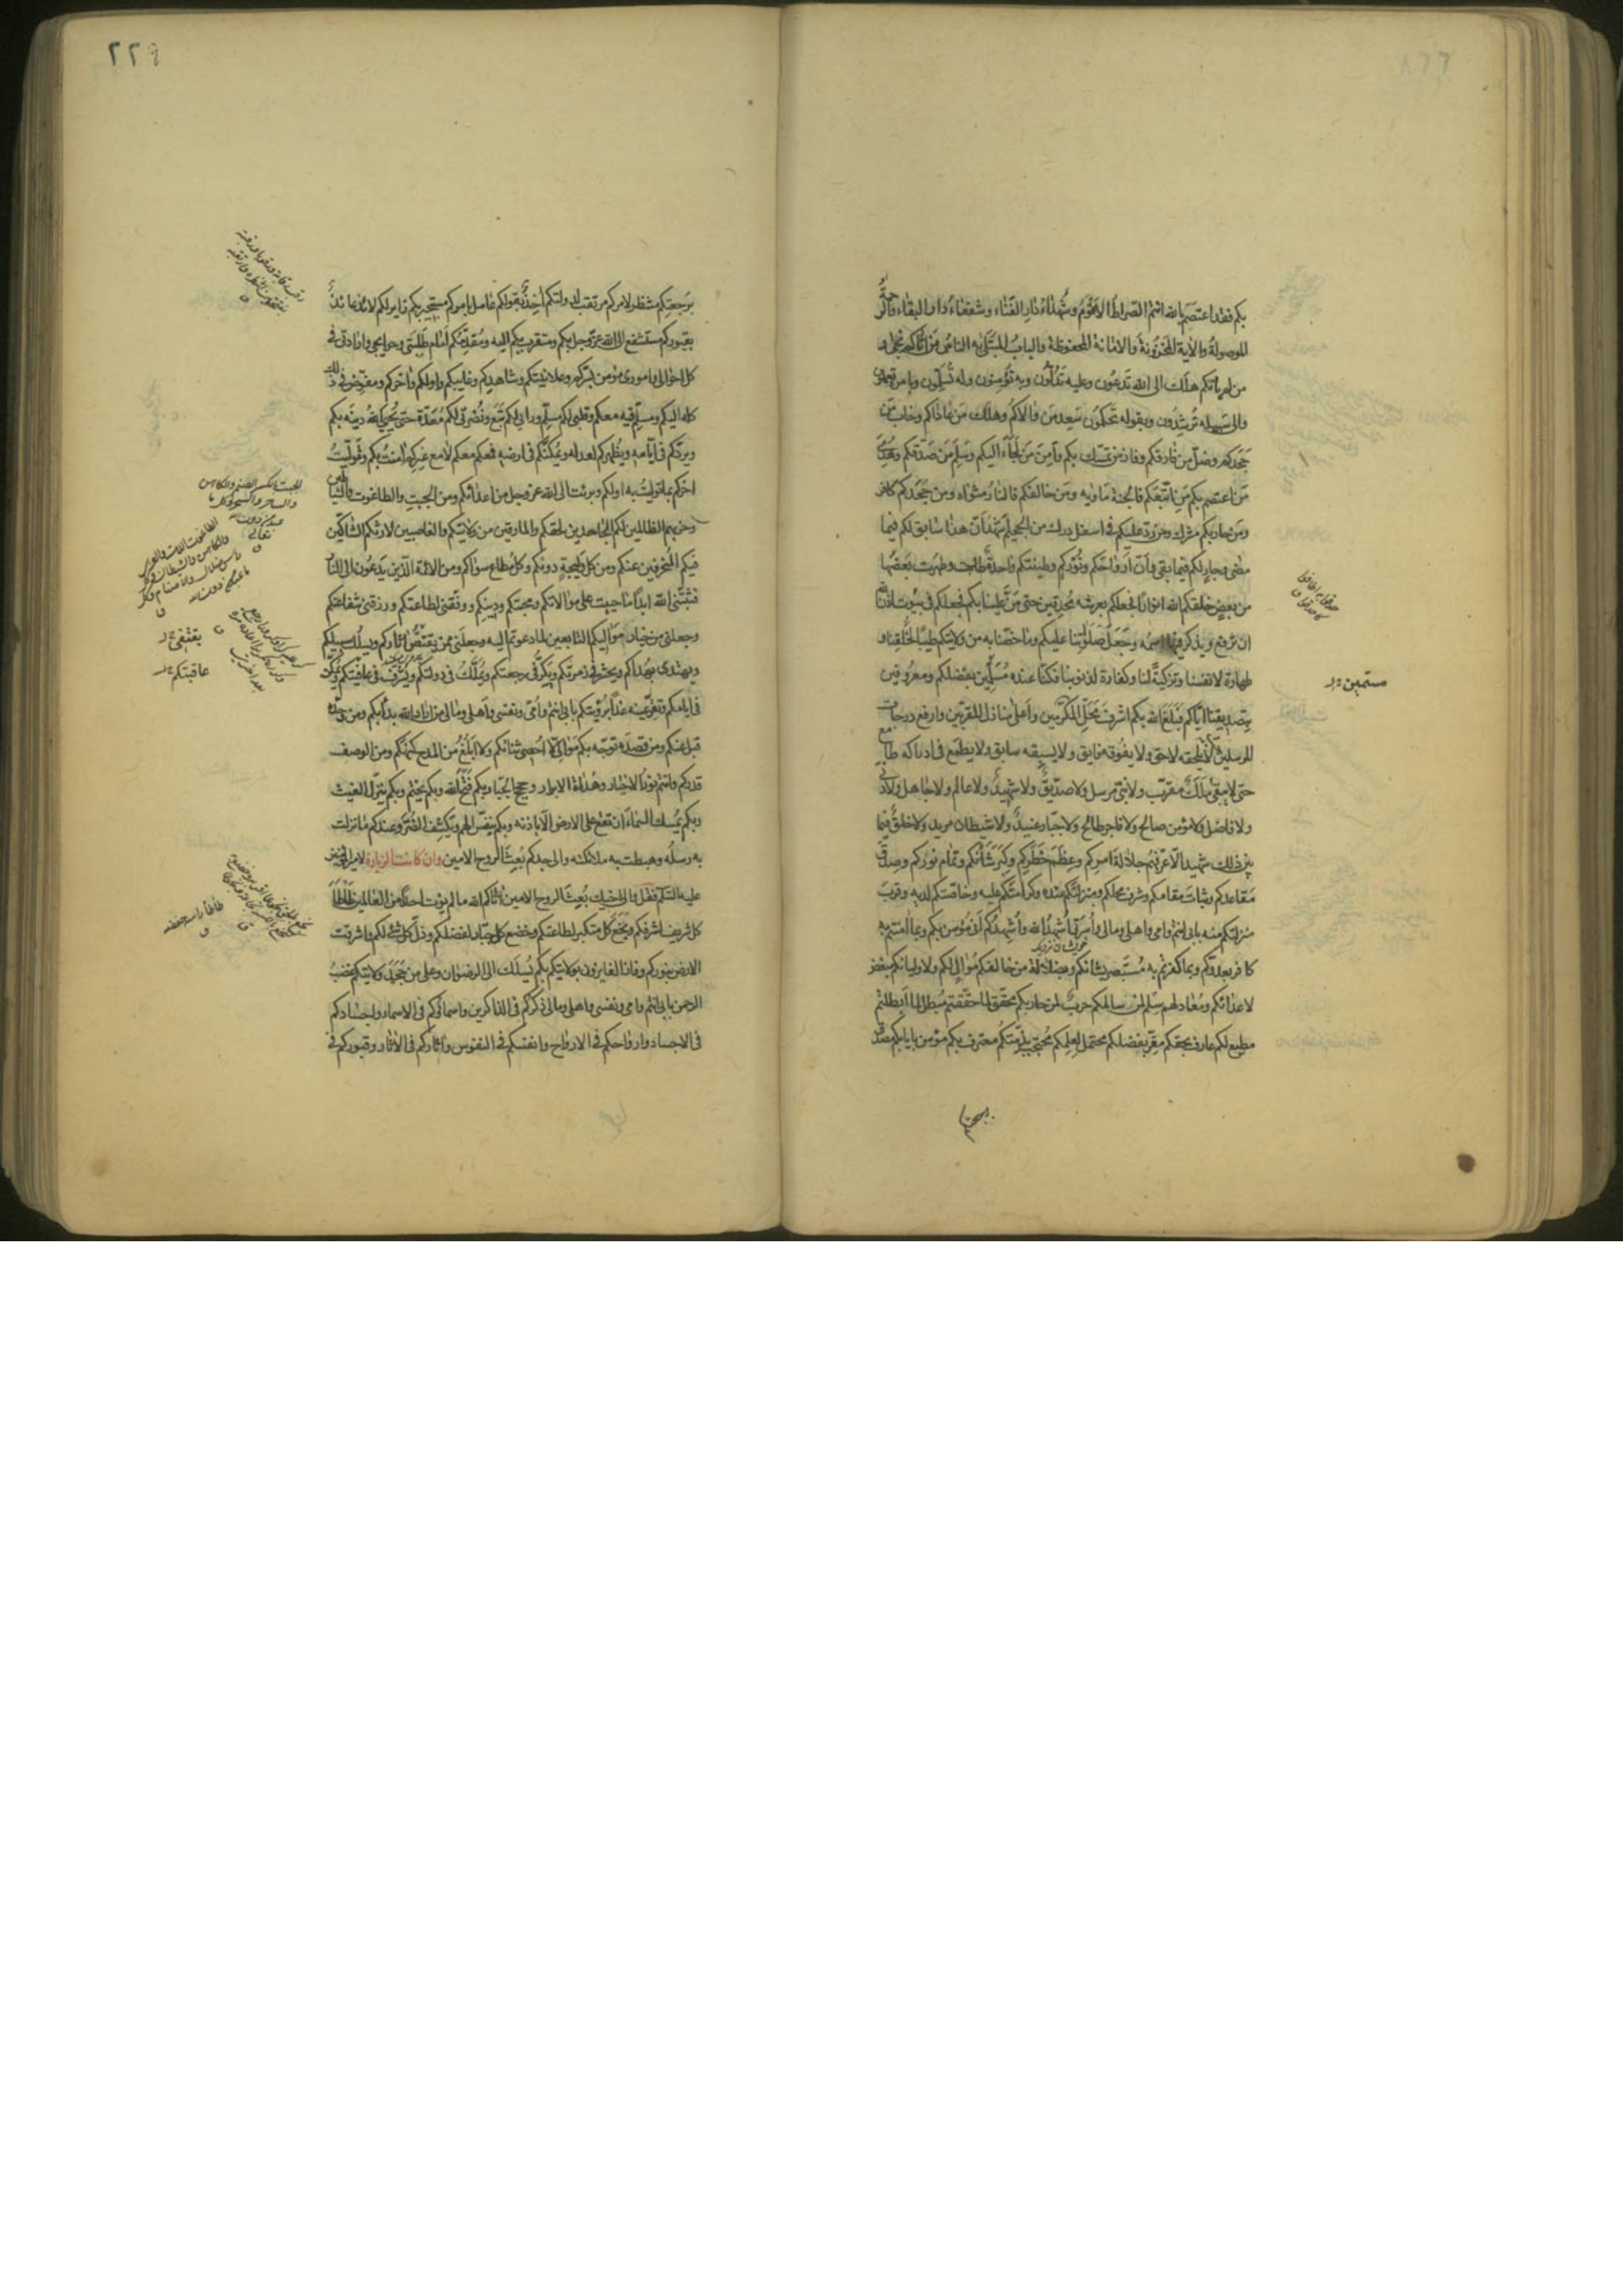 بكم فقد اعتصم بالله انتم الصراط الاقوم وشهداء دار الفناء وشفعاء دار البقاء والرحمة
الموصولة والاية المخزونة والامانة المحفوظة والباب المبتلى به الناس من اتاكم نجى و
من لم ياتكم هلك الى الله تدعون وعليه تدلون وبه تؤمنون وله تسلمون وبامره تعملون
والى سبيله ترشدون وبقوله تحكمون سعد من والاكم وهلك من عاداكم وخاب من
جحدكم وضل من فارقكم وفاز من تمسك بكم وامن من لجأ اليكم وسلم من صدقكم وهدى
من اعتصم بكم من اتبعكم فالجنة ماويه ومن خالفكم فالنار مثواه ومن جحدكم كافر
ومن حاربكم مشرك ومن رد عليكم في اسفل درك من الجحيم اشهد ان هذا سابق لكم فيما
مضى وجار لكم فيما بقى وان ارواحكم ونوركم وطينتكم واحدة طابت وطهرت بعضها
من بعض خلقكم الله انوارا فجعلكم بعرشه محدقين حتى من علينا بكم فجعلكم في بيوت اذن الله
ان ترفع ويذكر فيها اسمه وجعل صلواتنا عليكم وما خصنا به من ولايتكم طيبا لخلقنا و
طهارة لانفسنا وتزكية لنا وكفارة لذنوبنا فكنا عنده مسلمين بفضلكم ومعروفين
بتصديقنا اياكم فبلغ الله بكم اشرف محل المكرمين واعلى منازل المقربين وارفع درجات
المرسلين حيث لا يلحقه لاحق ولا يفوقه فايق ولا يسبقه سابق ولا يطمع في ادراكه طامع
حتى لا يبقى ملك مقرب ولا نبي مرسل ولا صديق ولا شهيد ولا عالم ولا جاهل ولا دني
ولا فاضل ولا مؤمن صالح ولا فاجر طالح ولا جبار عنيد ولا شيطان مريد ولا خلق فيما
بين ذلك شهيد الا عرفهم جلالة امركم وعظم خطركم وكبر شانكم وتمام نوركم وصدق
مقاعدكم وثبات مقامكم وشرف محلكم ومنزلتكم عنده وكرامتكم عليه وخاصتكم لديه وقرب
منزلتكم منه بابي انتم وامي واهلي ومالي واسرتي اشهد الله واشهدكم اني مؤمن بكم وبما امنتم به
كافر بعدوكم وبما كفرتم به مستبصر بشانكم وبضلالة من خالفكم موال لكم ولاوليائكم مبغض
لاعدائكم ومعاد لهم سلم لمن سالمكم حرب لمن حاربكم محقق لما حققتم مبطل لما ابطلتم
مطيع لكم عارف بحقكم مقر بفضلكم محتمل لعلمكم محتجب بذمتكم معترف بكم مؤمن بايابكم مصدق
برجعتكم
٢٢٩
برجعتكم منتظر لامركم مرتقب لدولتكم اخذ بقولكم عامل بامركم مستجير بكم زاير لكم لائذ عائذ
بقبوركم مستشفع الى الله عز وجل بكم ومتقرب بكم اليه ومقدمكم امام طلبتي وحوايجي وارادتي في
كل احوالي واموري مؤمن بسركم وعلانيتكم وشاهدكم وغايبكم واولكم واخركم ومفوض في ذلك
كله اليكم ومسلم فيه معكم وقلبي لكم مسلم ورايي لكم تبع ونصرتي لكم معدة حتى يحيي الله دينه بكم
ويردكم في ايامه ويظهركم لعدله ويمكنكم في ارضه فمعكم معكم لا مع غيركم امنت بكم وتوليت
اخركم بما توليت به اولكم وبرئت الى الله عز وجل من اعدائكم ومن الجبت والطاغوت والشياطين
وحزبهم الظالمين لكم الجاحدين لحقكم والمارقين من ولايتكم والغاصبين لارثكم الشاكين
فيكم المنحرفين عنكم ومن كل وليجة دونكم وكل مطاع سواكم ومن الائمة الذين يدعون الى النار
فثبتني الله ابدا ما حييت على موالاتكم ومحبتكم ودينكم ووفقني لطاعتكم ورزقني شفاعتكم
وجعلني من خيار مواليكم التابعين لما دعوتم اليه وجعلني ممن يقتص اثاركم ويسلك سبيلكم
ويهتدي بهداكم ويحشر في زمرتكم ويكر في رجعتكم ويملك في دولتكم ويشرف في عافيتكم ويمكن
في ايامكم وتقر عينه غدا برؤيتكم بابي انتم وامي ونفسي واهلي ومالي من اراد الله بدأ بكم ومن وحده
قبل عنكم ومن قصده توجه بكم موالي لا احصي ثنائكم ولا ابلغ من المدح كنهكم ومن الوصف
قدركم وانتم نور الاخيار وهداة الابرار وحجج الجبار بكم فتح الله وبكم يختم وبكم ينزل الغيث
وبكم يمسك السماء ان تقع على الارض الا باذنه وبكم ينفس الهم ويكشف الضر وعندكم ما نزلت
به رسله وهبطت به ملائكته والى جدكم بعث الروح الامين وان كانت الزيارة لامير المؤمنين
عليه السلم فقل والى اخيك بعث الروح الامين اتاكم الله ما لم يؤت احدا من العالمين طأطأ
كل شريف لشرفكم وبخع كل متكبر لطاعتكم وخضع كل جبار لفضلكم وذل كل شئ لكم واشرقت
الارض بنوركم وفاز الفايزون بولايتكم بكم يسلك الى الرضوان وعلى من جحد ولايتكم غضب
الرحمن بابي انتم وامي ونفسي واهلي ومالي ذكركم في الذاكرين واسماؤكم في الاسماء واجسادكم
في الاجساد وارواحكم في الارواح وانفسكم في النفوس واثاركم في الاثار وقبوركم في
الجبت بالكسر الصنم والكاهن
والساحر والسحر وكل ما
عبد من دون الله
تعالى
يقتفي
عاقبتكم
طأطأ راسه خفضه